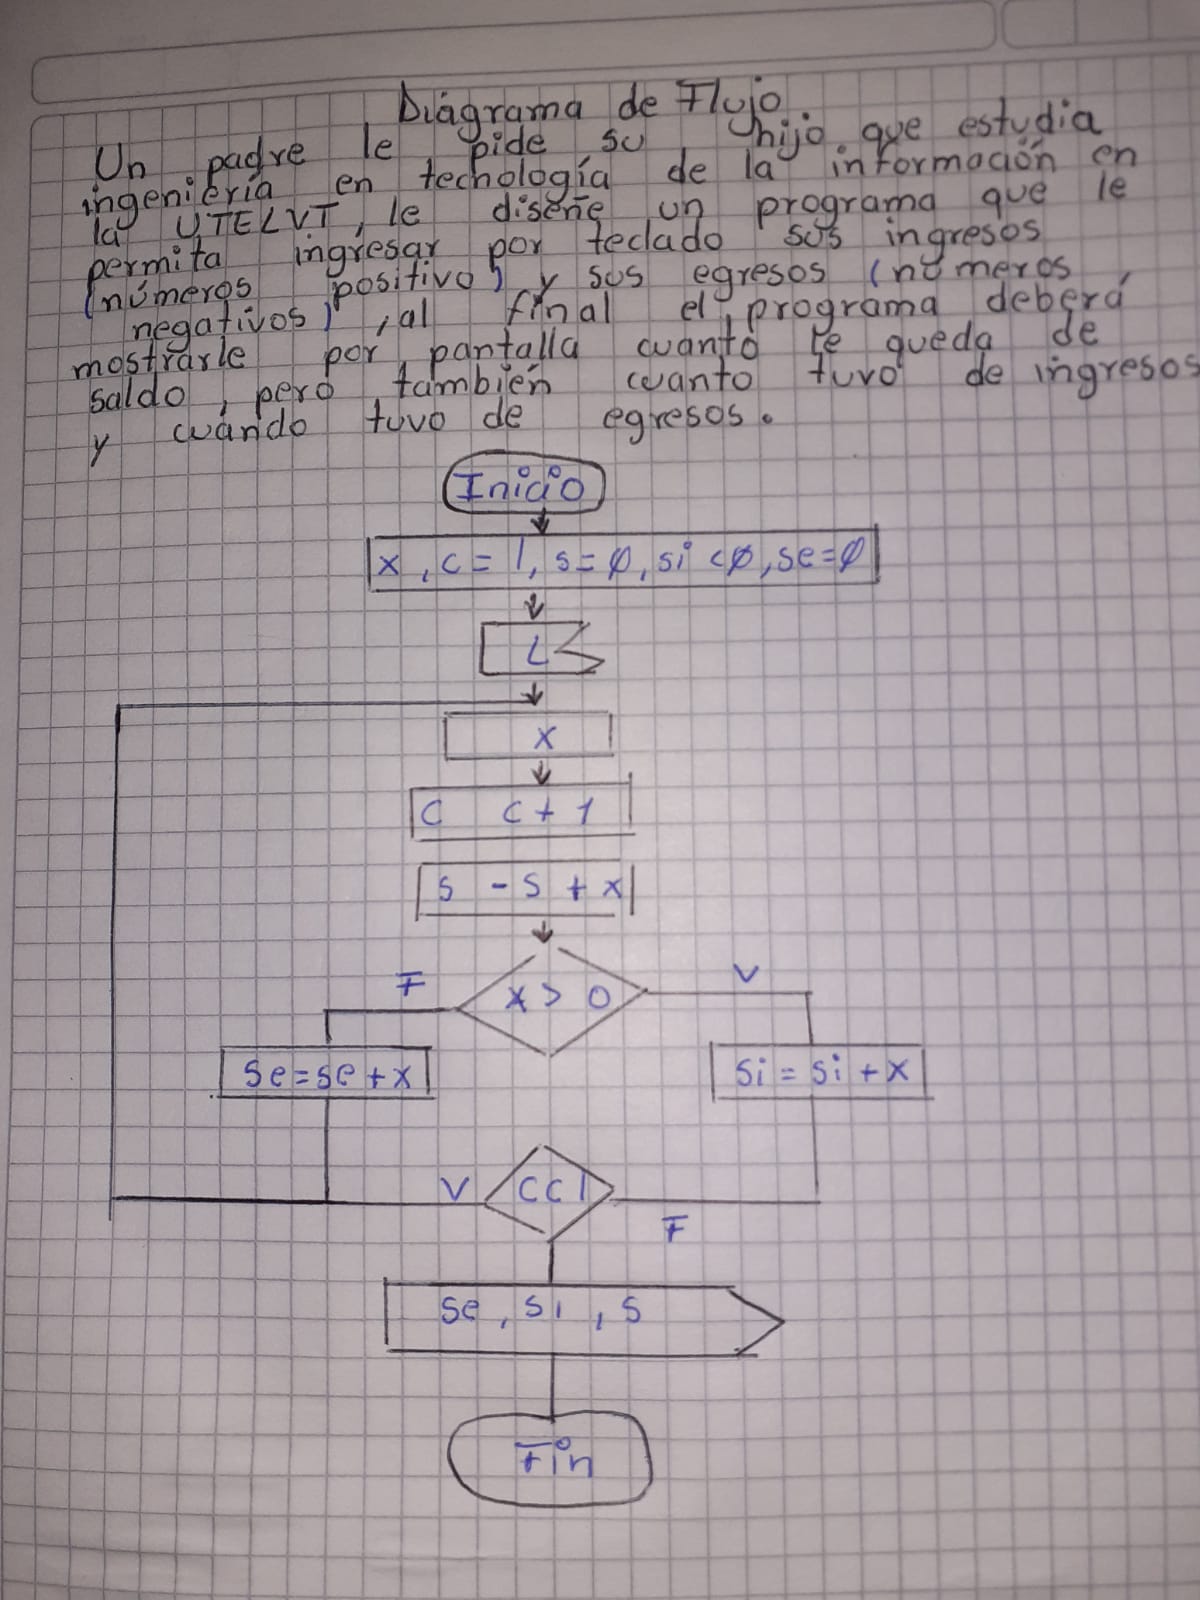 Diagrama de Flujo
Un padre le pide su hijo que estudia
ingenieria en techología de la información en
la UTELVT, le diseñe un programa que le
permita ingresar por teclado sus ingresos
(números positivo) y sus egresos (números
negativos), al final el programa deberá
mostrarle por pantalla cuanto le queda de
saldo, pero también cuanto tuvo de ingresos
y cuándo tuvo de egresos.
Inicio
x, c = 1, s=ø, si <ø, se=ø
L
x
C C + 1
S - S + x
F x > 0 V
Se=se+x Si = Si + x
V CC1 F
Se, Si, S
Fin